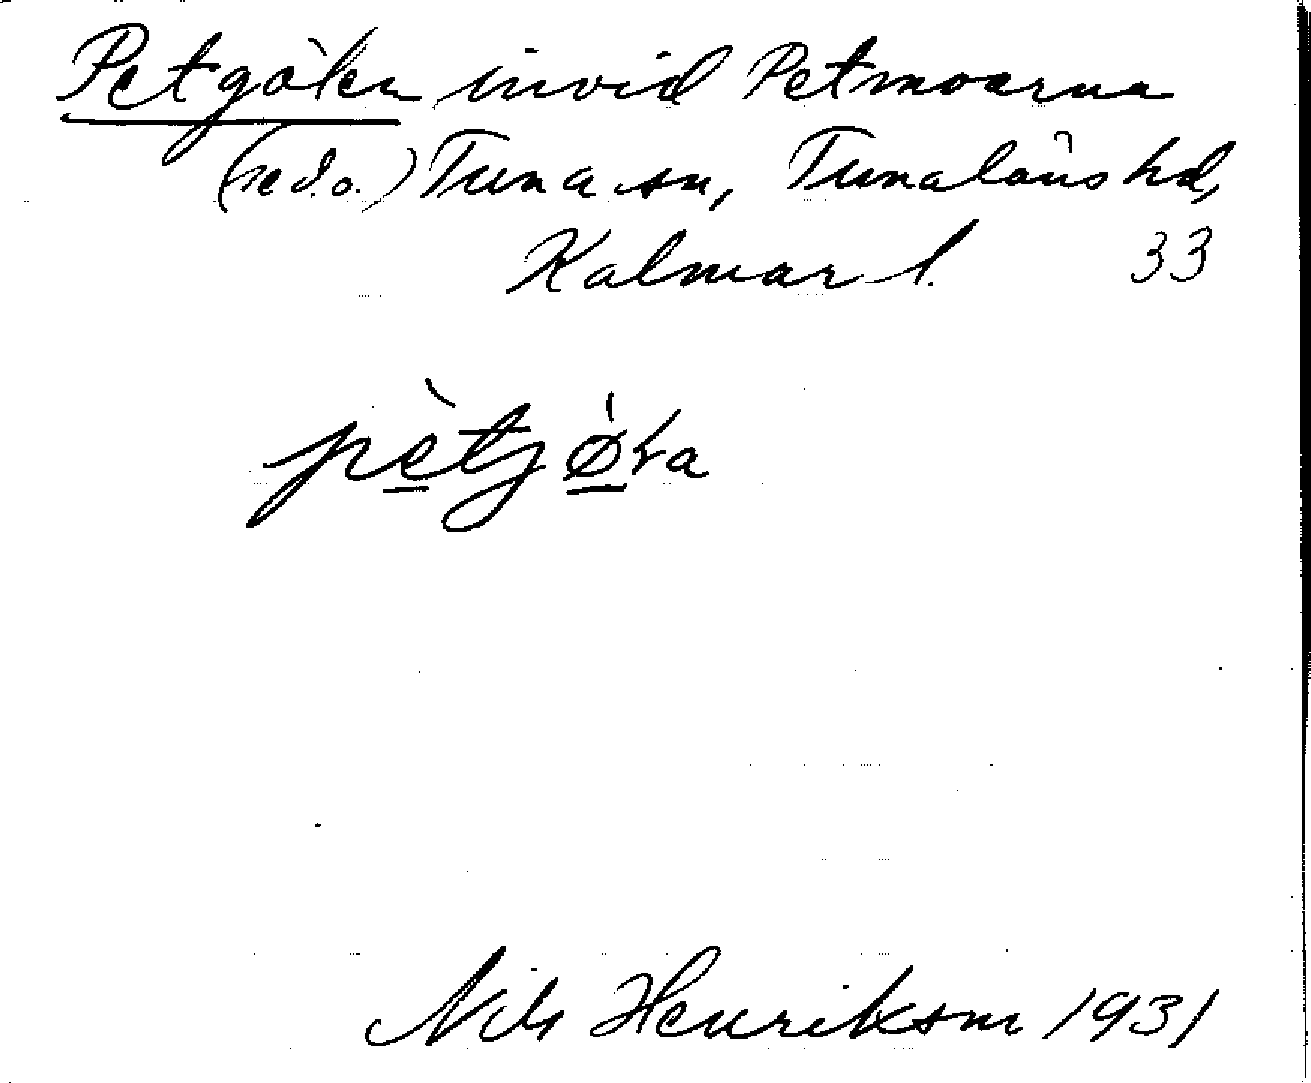 Petgölen invid Petmoarna
(se d.o.) Tuna sn, Tunaläns hd,
Kalmar l. 33
pètjø̀ɫa
Nils Henriksson 1931